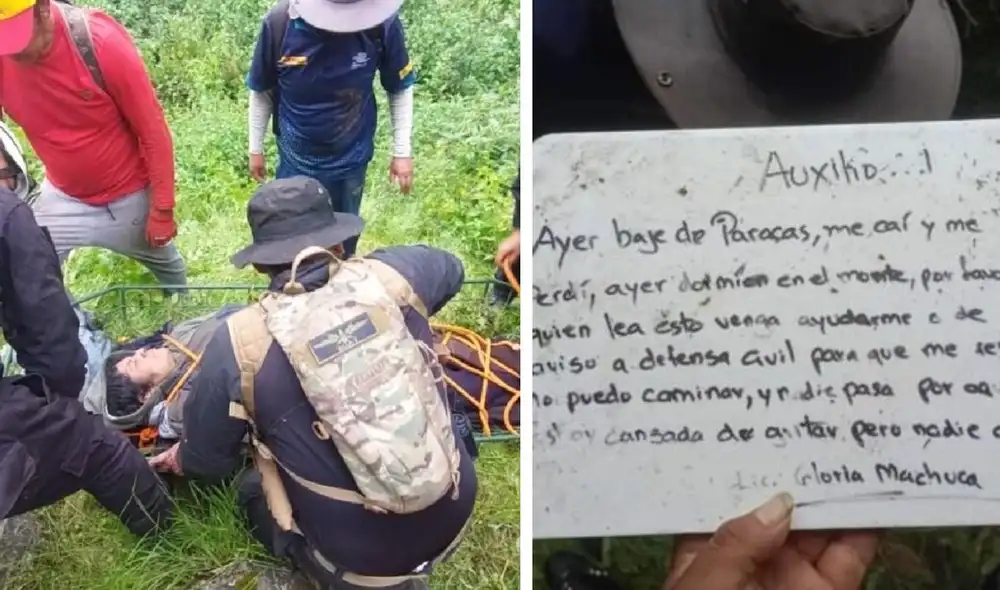 Auxilio...!
Ayer baje de Paracas, me caí y me
perdí, ayer dormí en el monte, por favo
quien lea esto venga ayudarme o de
aviso a defensa civil para que me
no puedo caminar, y nadie pasa por
Estoy cansada de gritar pero nadie
Lic. Gloria Machuca